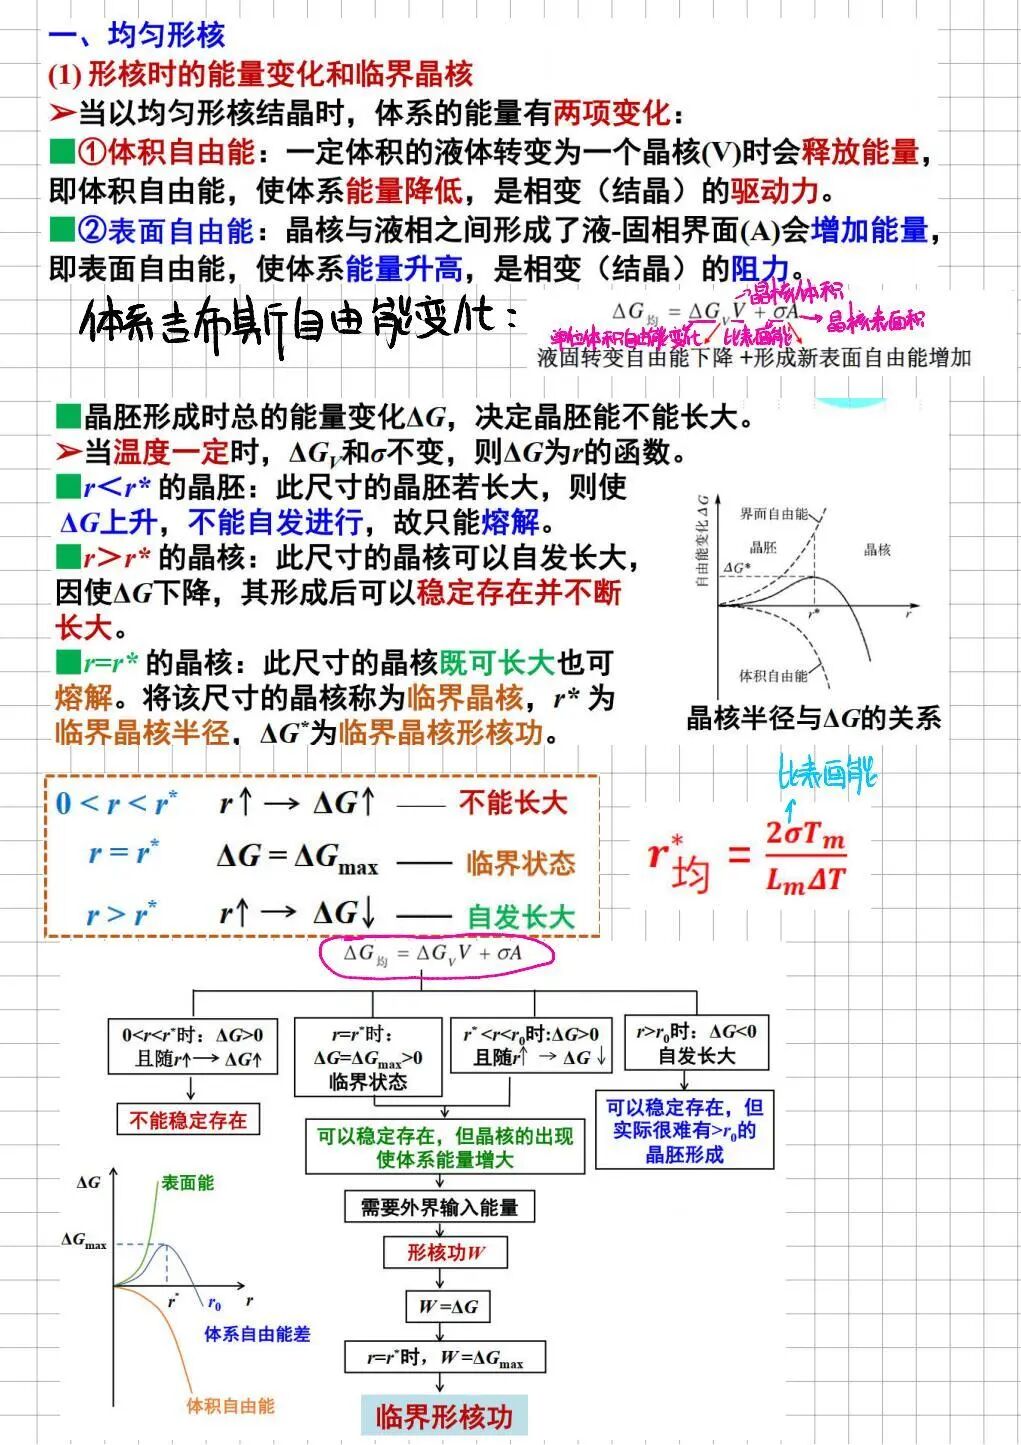 一、均匀形核
(1) 形核时的能量变化和临界晶核
➢当以均匀形核结晶时，体系的能量有两项变化：
■①体积自由能：一定体积的液体转变为一个晶核(V)时会释放能量，
即体积自由能，使体系能量降低，是相变（结晶）的驱动力。
■②表面自由能：晶核与液相之间形成了液-固相界面(A)会增加能量，
即表面自由能，使体系能量升高，是相变（结晶）的阻力。
体系吉布斯自由能变化：
晶核体积
ΔG均 = ΔG_V V + σA
晶核表面积
单位体积自由能变化 比表面能
液固转变自由能下降 +形成新表面自由能增加
■晶胚形成时总的能量变化ΔG，决定晶胚能不能长大。
➢当温度一定时，ΔG_V和σ不变，则ΔG为r的函数。
■r＜r* 的晶胚：此尺寸的晶胚若长大，则使
ΔG上升，不能自发进行，故只能熔解。
■r＞r* 的晶核：此尺寸的晶核可以自发长大，
因使ΔG下降，其形成后可以稳定存在并不断
长大。
■r=r* 的晶核：此尺寸的晶核既可长大也可
熔解。将该尺寸的晶核称为临界晶核，r* 为
临界晶核半径，ΔG*为临界晶核形核功。
自由能变化ΔG
界面自由能
晶胚
晶核
ΔG*
r*
r
体积自由能
晶核半径与ΔG的关系
0 < r < r* r↑ → ΔG↑ —— 不能长大
r = r* ΔG = ΔGmax —— 临界状态
r > r* r↑ → ΔG↓ —— 自发长大
比表面能
r*均 = 2σTm / LmΔT
ΔG均 = ΔG_V V + σA
0<r<r*时：ΔG>0
且随r↑→ ΔG↑
r=r*时：
ΔG=ΔGmax>0
临界状态
r* <r<r0时:ΔG>0
且随r↑ → ΔG ↓
r>r0时：ΔG<0
自发长大
不能稳定存在
可以稳定存在，但晶核的出现
使体系能量增大
可以稳定存在，但
实际很难有>r0的
晶胚形成
需要外界输入能量
形核功W
W =ΔG
r=r*时，W =ΔGmax
临界形核功
ΔG
表面能
ΔGmax
r*
r0
r
体系自由能差
体积自由能